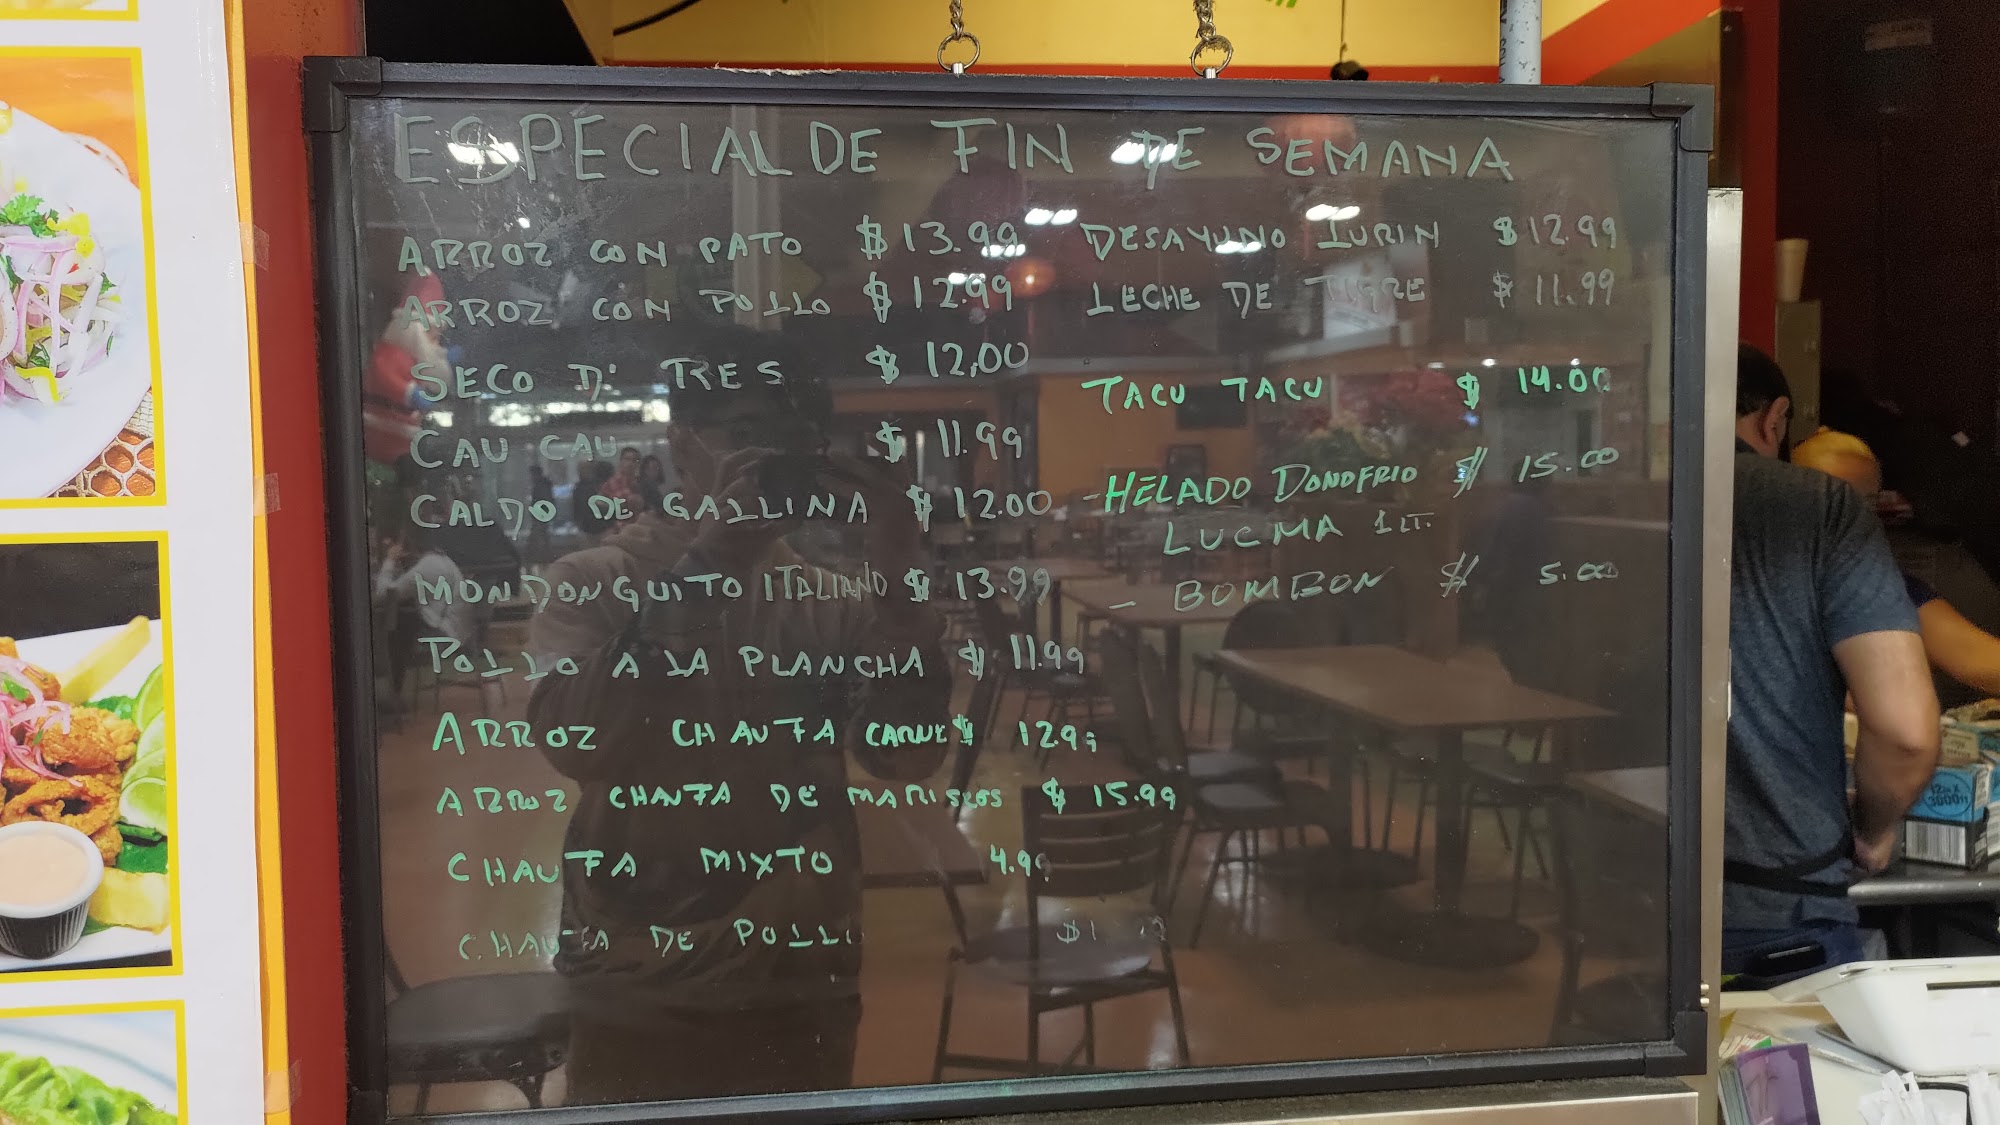 ESPECIAL DE FIN DE SEMANA
ARROZ CON PATO $ 13.99
ARROZ CON POLLO $ 12.99
SECO D' TRES $ 12.00
CAU CAU $ 11.99
CALDO DE GALLINA $ 12.00
MONDONGUITO ITALIANO $ 13.99
POLLO A LA PLANCHA $ 11.99
ARROZ CHAUFA CARNE $ 12.9
ARROZ CHAUFA DE MARISCOS $ 15.99
CHAUFA MIXTO 4.99
CHAUFA DE POLLO
DESAYUNO LURIN $ 12.99
LECHE DE TIGRE $ 11.99
TACU TACU $ 14.00
- HELADO DONOFRIO $ 15.00
LUCMA 1 LT.
- BOMBON $ 5.00